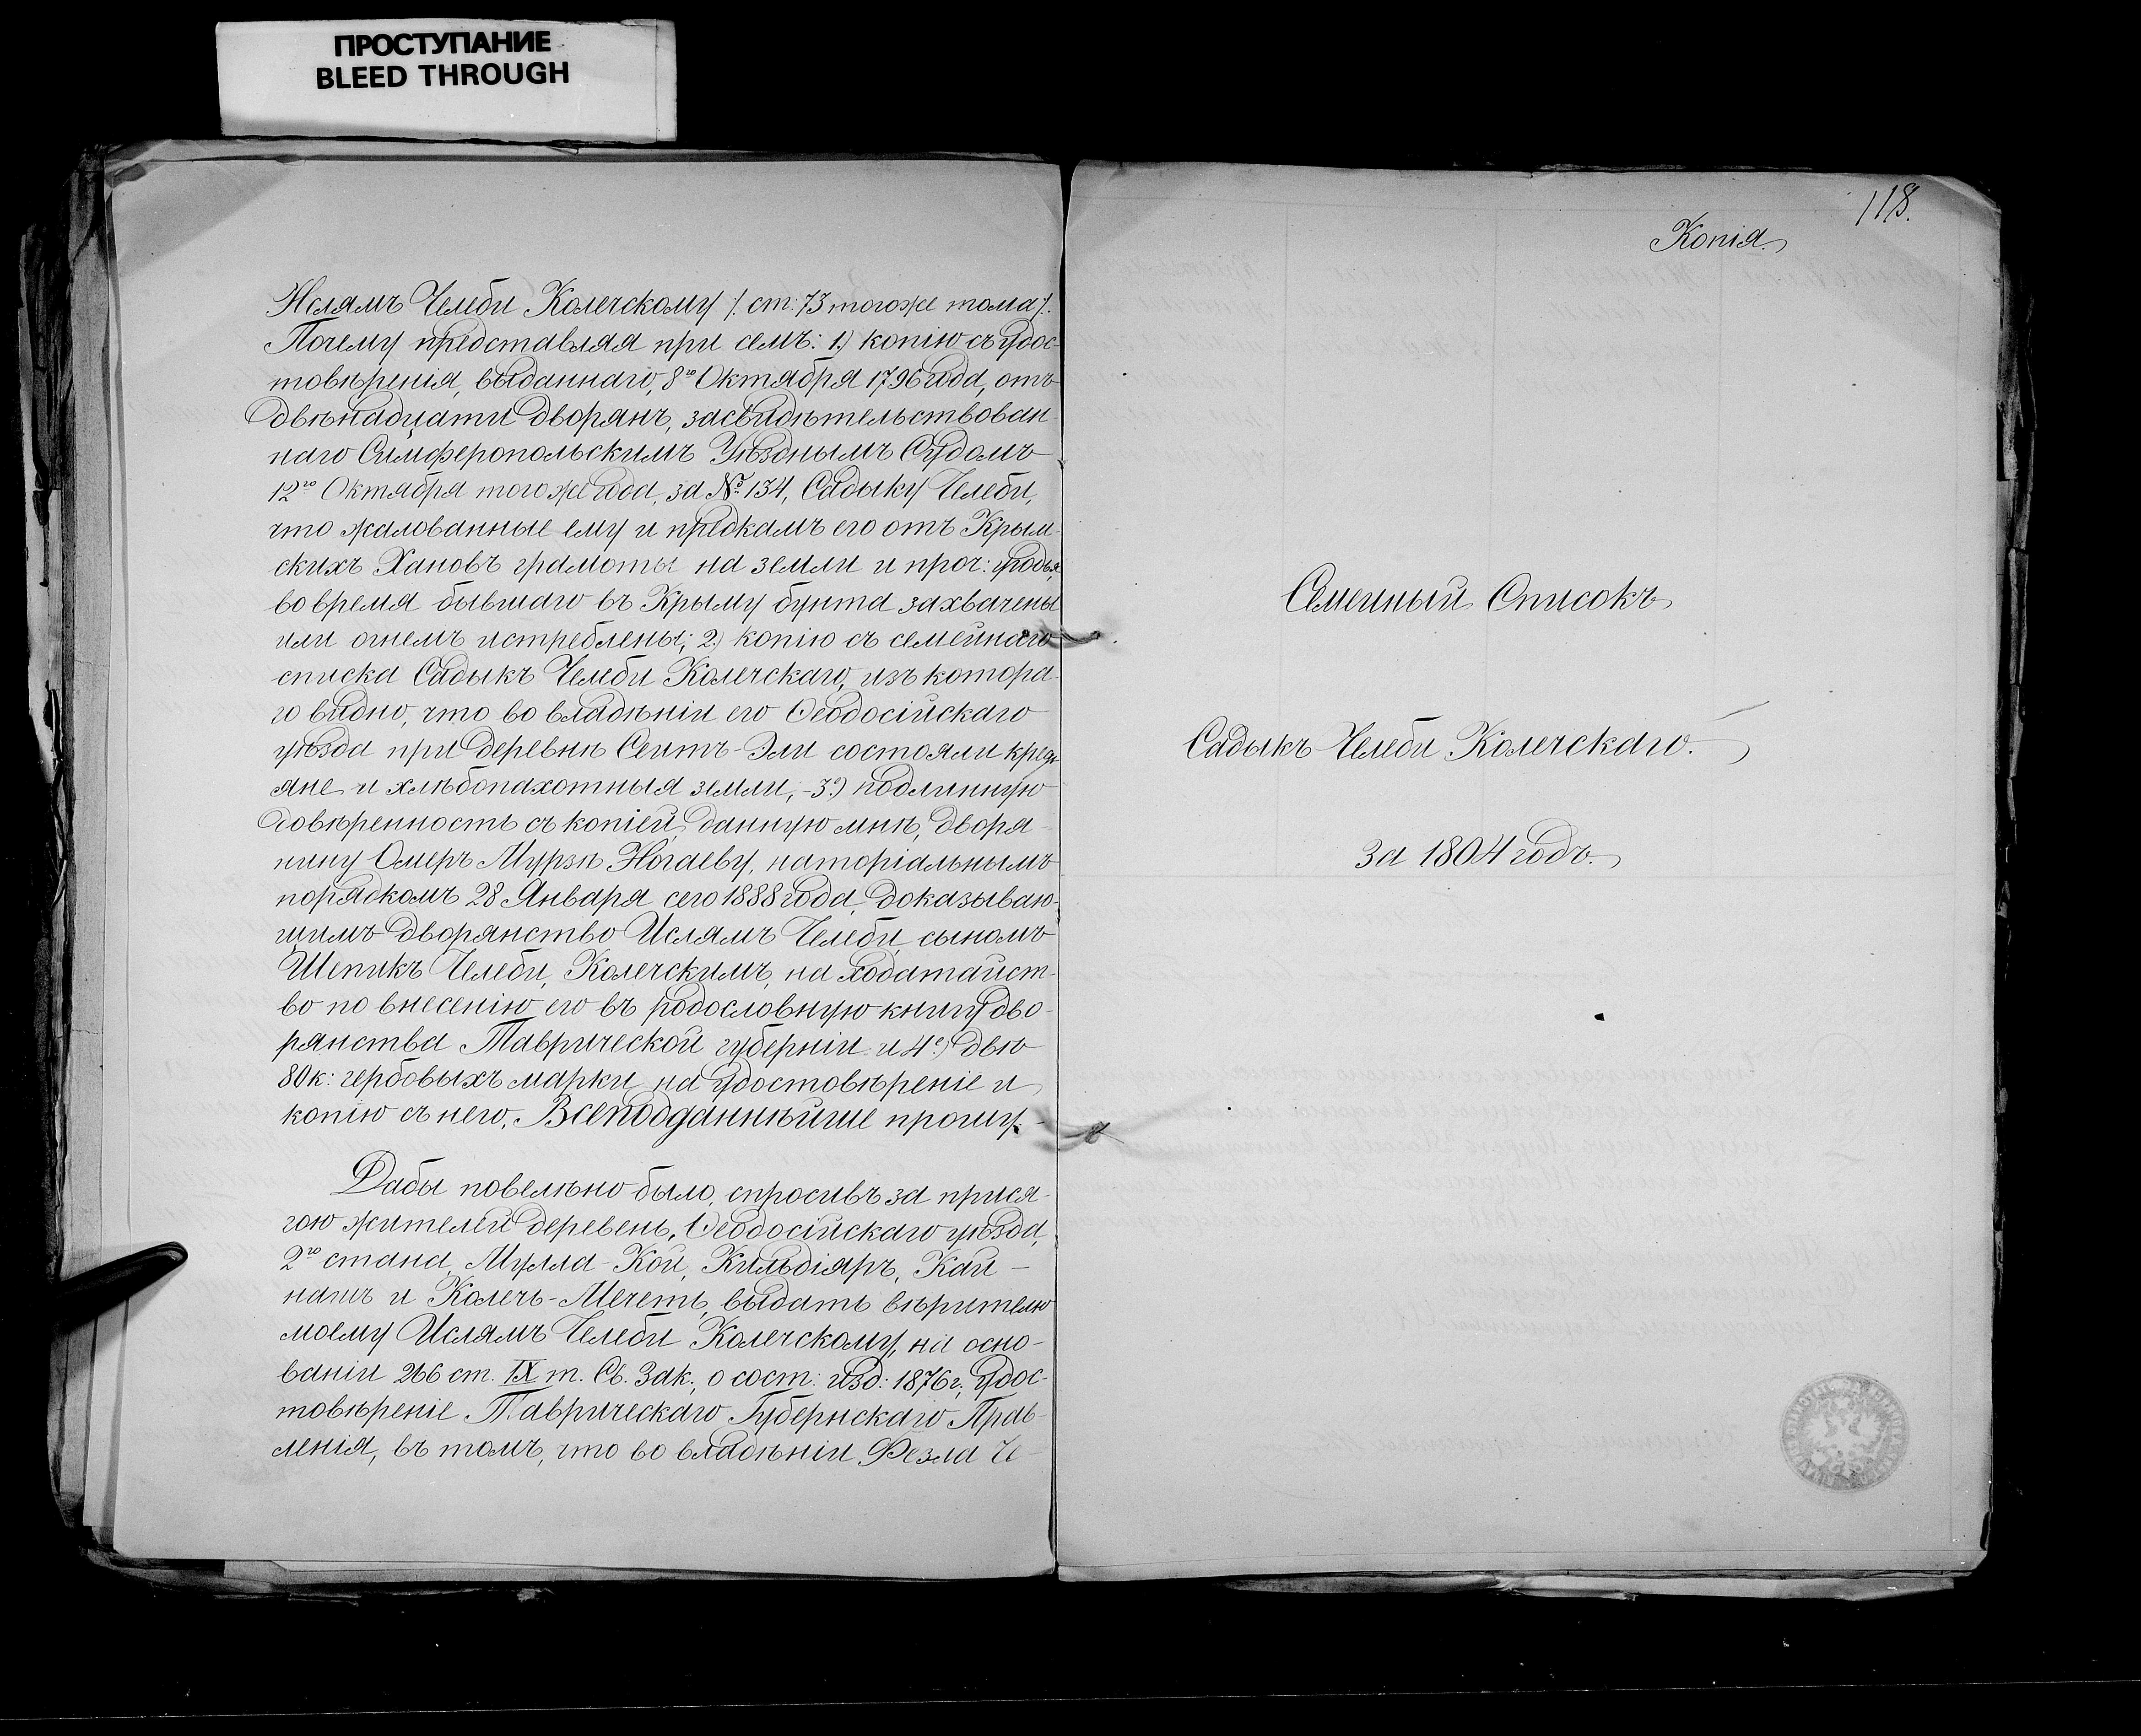 ПРОСТУПАНИЕ
BLEED THROUGH
Ислямъ Челеби Колечскому /. ст: 73 тогоже тома/.
Почему представляя при семъ: 1.) копію съ удос-
товѣренія, выданнаго, 8го Октября 1796 года, отъ
двѣнадцати дворянъ, засвидѣтельствован-
наго Симферопольскимъ Уѣзднымъ Судомъ
12го Октября того же года, за № 134, Садыку Челеби,
что жалованные ему и предкамъ его отъ Крым-
скихъ Хановъ грамоты на земли и проч: угодья,
во время бывшаго въ Крыму бунта захвачены
или огнемъ истреблены; 2.) копію съ семейнаго
списка Садыкъ Челеби Колечскаго, изъ котора-
го видно, что во владѣніи его Ѳеодосійскаго
уѣзда при деревнѣ Сеитъ-Эли состояли кресть
яне и хлѣбопахотныя земли, - 3.) подлинную
довѣренность съ копіей, данную мнѣ, дворя-
нину Омеръ Мурзѣ Ногаеву, наторіальнымъ
порядкомъ 28 Января сего 1888 года, доказываю-
щимъ дворянство Ислямъ Челеби, сыномъ
Шепикъ Челеби, Колечскимъ, на ходатайст-
во по внесенію его въ родословную книгу дво-
рянства Таврической губерніи и 4е.) двѣ
80 к: гербовыхъ марки на удостовѣреніе и
копію съ него, Всеподданнѣйше прошу. -
Дабы повелѣно было, спросивъ за прися-
гою жителей деревень, Ѳеодосійскаго уѣзда,
2го стана, Мулла-Кой, Кильдіяръ, Кай-
нашъ и Колечъ-Мечеть, выдать вѣрителю
моему Ислямъ Челеби Колечскому, на осно-
ваніи 266 ст. IX т. Св. Зак., о сост: изд: 1876 г., удос-
товѣреніе Таврическаго Губернскаго Прав-
ленія, въ томъ, что во владѣніи Фезла Че
118.
Копія.
Семейный Списокъ
Садыкъ Челеби Колечскаго.
За 1804 годъ.